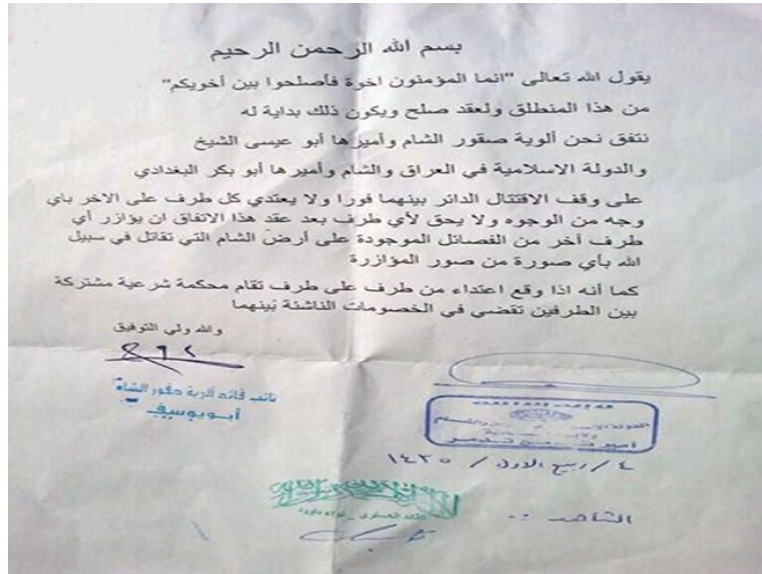 بسم الله الرحمن الرحيم
يقول الله تعالى "انما المؤمنون اخوة فأصلحوا بين أخويكم"
من هذا المنطلق ولعقد صلح ويكون ذلك بداية له
نتفق نحن ألوية صقور الشام وأميرها أبو عيسى الشيخ
والدولة الاسلامية في العراق والشام وأميرها أبو بكر البغدادي
على وقف الاقتتال الدائر بينهما فورا ولا يعتدي كل طرف على الاخر باي
وجه من الوجوه ولا يحق لأي طرف بعد عقد هذا الاتفاق ان يؤازر أي
طرف آخر من الفصائل الموجودة على أرض الشام التي تقاتل في سبيل
الله بأي صورة من صور المؤازرة
كما أنه اذا وقع اعتداء من طرف على طرف تقام محكمة شرعية مشتركة
بين الطرفين تقضي في الخصومات الناشئة بينهما
والله ولي التوفيق
نائب قائد ألوية صقور الشام
أبو يوسف
٤ / ربيع الاول / ١٤٣٥
القائد العسكري - لواء داوود
الشاهد ..